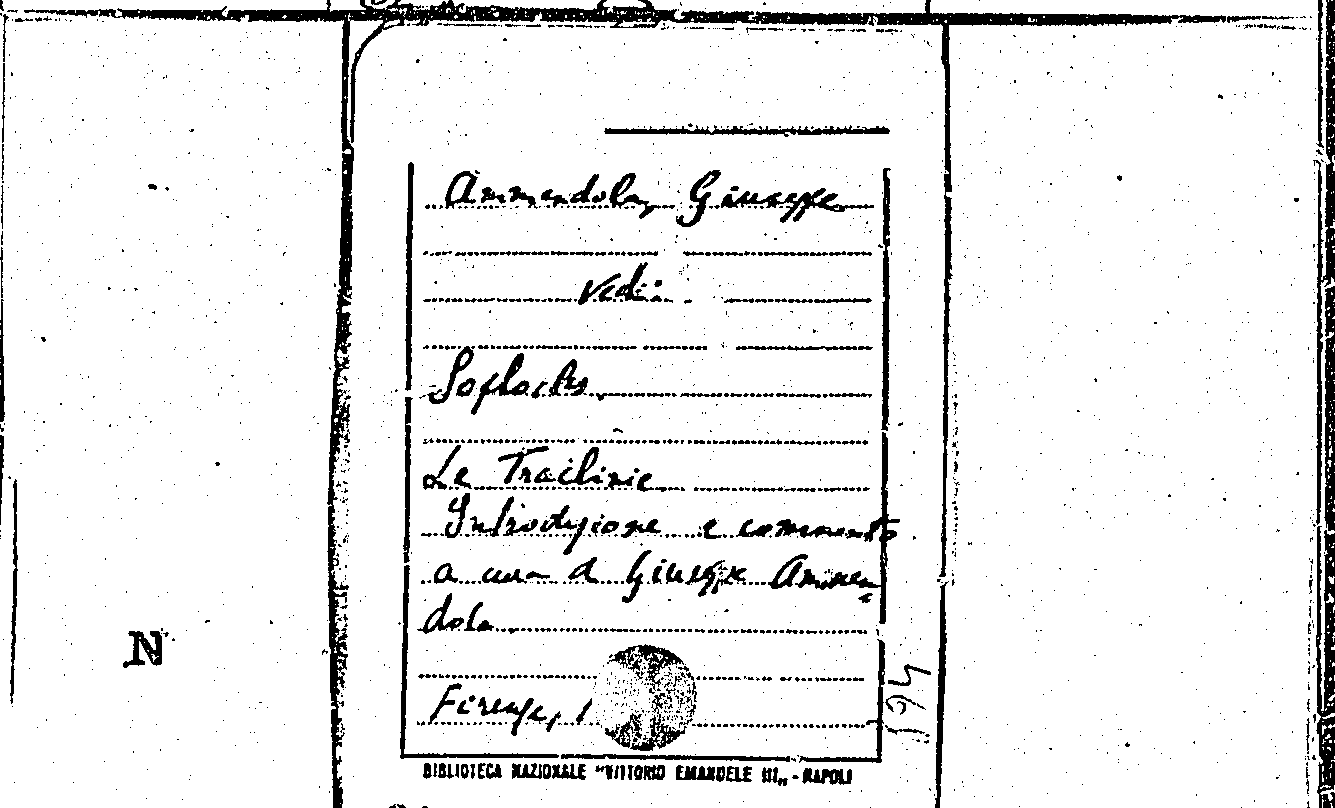 Ammendola, Giuseppe
Vedi:
Sophocles.
Le Trachinie
Introduzione e commento
a cura di Giuseppe Ammen=
dola.
Firenze, 1
BIBLIOTECA NAZIONALE "VITTORIO EMANUELE III„ - NAPOLI
N